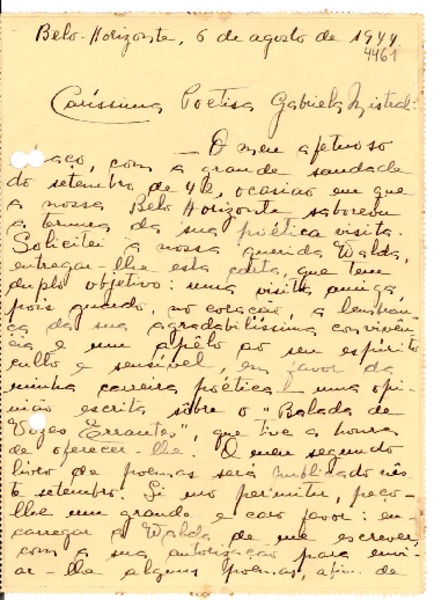 Belo-Horizonte, 6 de agosto de 1944
4461
Caríssima Poetisa Gabriela Mistral:
— O meu afetuoso
aço, com a grande saudade
do setembro de 42, ocasião em que
a nossa Belo Horizonte saboreou
a ternura da sua poética visita.
Solicitei à nossa querida Walda,
entregar-lhe esta carta, que tem
duplo objetivo: uma visita amiga,
pois guardo, no coração, a lembran-
ça da sua agradabilíssima convivên-
cia e um apêlo ao seu espírito
culto e sensível, em favor da
minha carreira poética: uma opi-
nião escrita sôbre o "Balada de
Vozes Errantes", que tive a honra
de oferecer-lhe. O meu segundo
livro de poemas será publicado nês-
te setembro. Si mo permitir, peço-
lhe um grande e caro favor: en-
carregar a Walda de me escrever,
com a sua autorização para envi-
ar-lhe alguns poemas, afim de